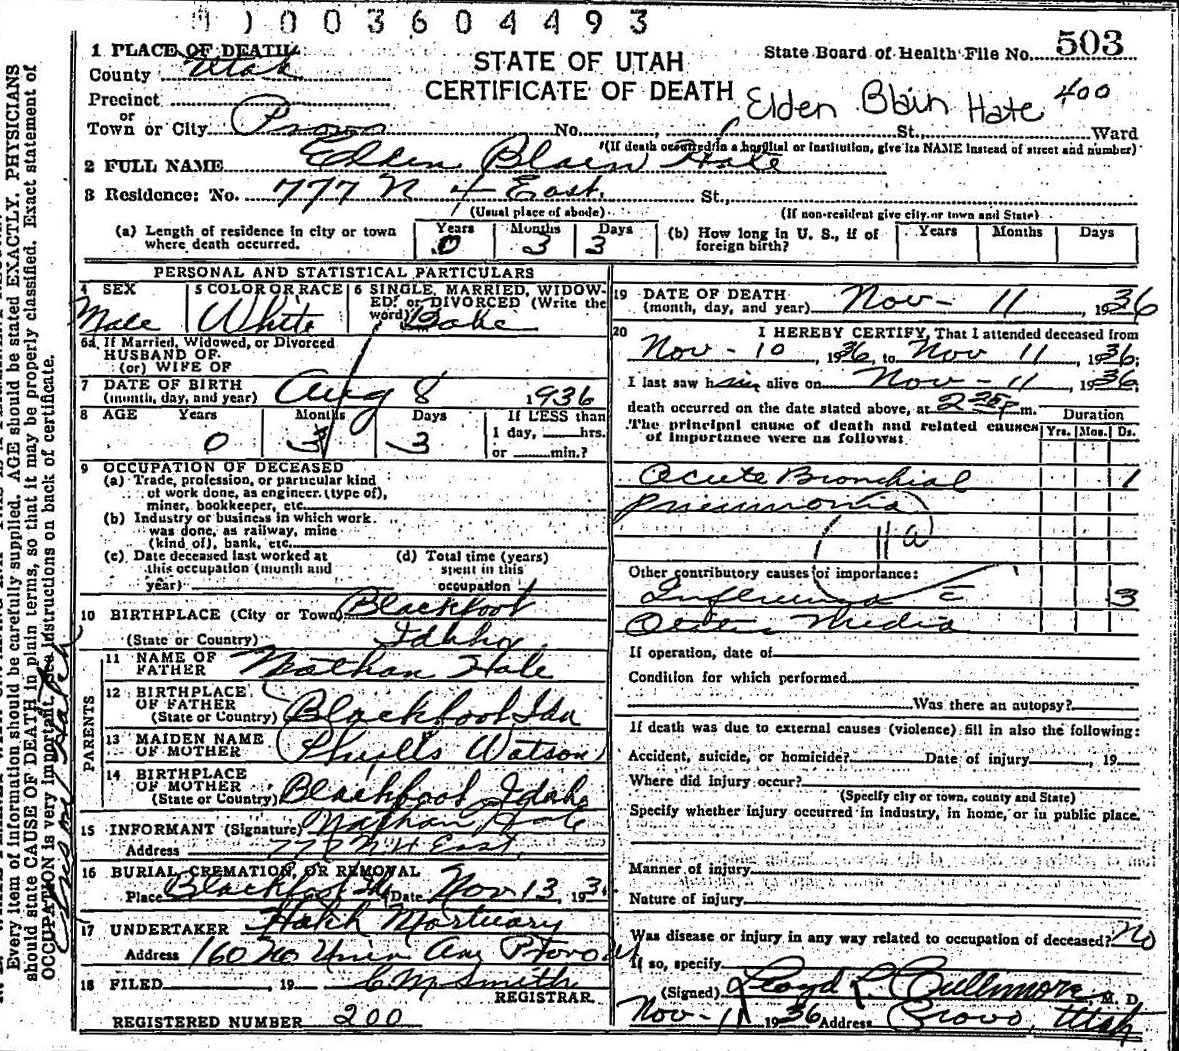 0 0 0 3 6 0 4 4 9 3
1 PLACE OF DEATH
County Utah
STATE OF UTAH
CERTIFICATE OF DEATH
State Board of Health File No. 503
Elden Blain Hale 400
Precinct
or
Town or City Provo No. , St., Ward
(If death occurred in a hospital or institution, give its NAME instead of street and number)
2 FULL NAME Elden Blain Hale
3 Residence: No. 777 N 4 East. St.,
(Usual place of abode) (If non-resident give city or town and State)
(a) Length of residence in city or town where death occurred. Years 0 Months 3 Days 3
(b) How long in U. S., if of foreign birth? Years Months Days
PERSONAL AND STATISTICAL PARTICULARS
4 SEX Male
5 COLOR OR RACE White
6 SINGLE, MARRIED, WIDOWED, or DIVORCED (Write the word)
6a If Married, Widowed, or Divorced
HUSBAND OF
(or) WIFE OF
7 DATE OF BIRTH
(month, day, and year) Aug 8 1936
8 AGE Years 0 Months 3 Days 3
If LESS than 1 day, hrs. or min.?
9 OCCUPATION OF DECEASED
(a) Trade, profession, or particular kind
of work done, as engineer (type of),
miner, bookkeeper, etc.
(b) Industry or business in which work
was done, as railway, mine
(kind of), bank, etc.
(c) Date deceased last worked at
this occupation (month and
year)
(d) Total time (years)
spent in this
occupation
10 BIRTHPLACE (City or Town) Blackfoot
(State or Country) Idaho
PARENTS
11 NAME OF
FATHER Nathan Hale
12 BIRTHPLACE
OF FATHER
(State or Country) Blackfoot Ida
13 MAIDEN NAME
OF MOTHER Phyllis Watson
14 BIRTHPLACE
OF MOTHER
(State or Country) Blackfoot Idaho
15 INFORMANT (Signature) Nathan Hale
Address 777 N 4 East.
16 BURIAL, CREMATION, OR REMOVAL
Place Blackfoot Ida Date Nov 13, 193
17 UNDERTAKER Hatch Mortuary
Address 160 No Univ Ave Provo U
18 FILED , 19 C M Smith
REGISTRAR.
REGISTERED NUMBER 200
19 DATE OF DEATH
(month, day, and year) Nov- 11, 1936
20 I HEREBY CERTIFY, That I attended deceased from
Nov-10, 1936, to Nov 11, 1936;
I last saw him alive on Nov-11, 1936,
death occurred on the date stated above, at 2 25P m.
The principal cause of death and related causes
of importance were as follows:
Duration
Yrs. Mos. Ds.
Acute Bronchial 1
Pneumonia
11a
Other contributory causes of importance:
Influenza 3
Otitis Media
If operation, date of
Condition for which performed
Was there an autopsy?
If death was due to external causes (violence) fill in also the following:
Accident, suicide, or homicide? Date of injury , 19
Where did injury occur?
(Specify city or town, county and State)
Specify whether injury occurred in industry, in home, or in public place.
Manner of injury
Nature of injury
Was disease or injury in any way related to occupation of deceased? No
If so, specify
(Signed) Lloyd L. Cullimore, M. D.
Nov-11 1936 Address Provo, Utah
Every item of information should be carefully supplied. AGE should be stated EXACTLY. PHYSICIANS
should state CAUSE OF DEATH in plain terms, so that it may be properly classified. Exact statement of
OCCUPATION is very important. See instructions on back of certificate.